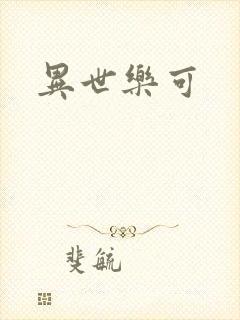 異世樂可
斐毓